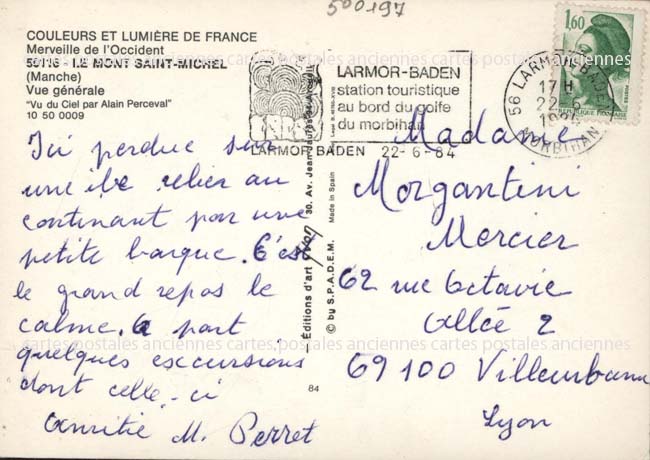 500197
COULEURS ET LUMIÈRE DE FRANCE
Merveille de l'Occident
50116 - LE MONT SAINT-MICHEL
(Manche)
Vue générale
"Vu du Ciel par Alain Perceval"
10 50 0009
Ici perdue sur
une ile relier au
continant par une
petite barque. C'est
le grand repos le
calme. A part
quelques excursions
dont celle-ci
Amitié M. Perret
LARMOR-BADEN
station touristique
au bord du golfe
du morbihan
LARMOR BADEN 22-6-84
56 LARMOR-BADEN
17 H
22-6
MORBIHAN
1,60
REPUBLIQUE FRANÇAISE
POSTES
Éditions d'art
30. Av. Jean
Made in Spain
© by S.P.A.D.E.M.
84
Madame
Morgantini
Mercier
62 rue Octavie
Allée 2
69100 Villeurbanne
Lyon
cartes postales anciennes